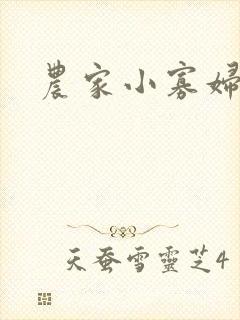 農家小寡婦
天蚕雪靈芝4